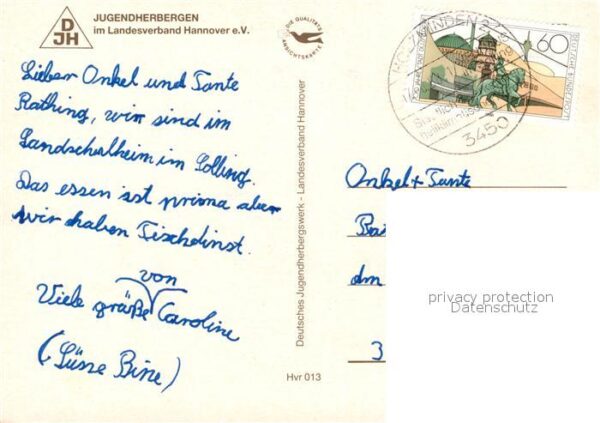 DJH
JUGENDHERBERGEN
im Landesverband Hannover e.V.
DIE QUALITÄTS
ANSICHTSKARTE
60
DEUTSCHE BUNDESPOST
3450
Lieber Onkel und Tante
Rathing, wir sind im
Landschulheim im Solling.
Das essen ist prima aber
wir haben Tischdinst.
von
Viele größe Caroline
(Süsse Bine)
Deutsches Jugendherbergswerk - Landesverband Hannover
Hvr 013
Onkel + Tante
am
3
privacy protection
Datenschutz